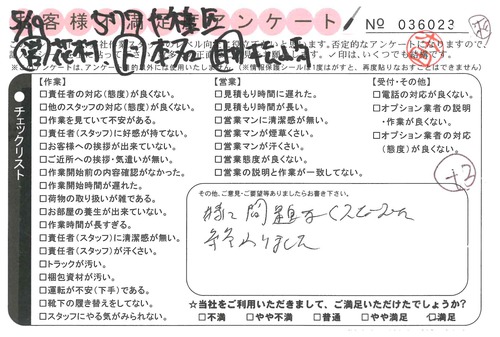 お客様満足度アンケート
No 036023
【作業】
□責任者の対応(態度)が良くない。
□他のスタッフの対応(態度)が良くない。
□作業を見ていて不安がある。
□責任者(スタッフ)に好感が持てない。
□お客様への挨拶が出来ていない。
□ご近所への挨拶・気遣いが無い。
□作業開始前の内容確認がなかった。
□作業開始時間が遅れた。
□荷物の取り扱いが雑である。
□お部屋の養生が出来ていない。
□作業時間が長すぎる。
□責任者(スタッフ)に清潔感が無い。
□責任者(スタッフ)が汗くさい。
□トラックが汚い。
□梱包資材が汚い。
□運転が不安(下手)である。
□靴下の履き替えをしてない。
□スタッフにやる気がみられない。
【営業】
□見積もり時間に遅れた。
□見積もり時間が長い。
□営業マンに清潔感が無い。
□営業マンが煙草くさい。
□営業マンが汗くさい。
□営業態度が良くない。
□営業の説明と作業が一致してない。
【受付・その他】
□電話の対応が良くない。
□オプション業者の説明
・作業が良くない。
□オプション業者の対応
(態度)が良くない。
●チェックリスト
+3
その他、ご意見・ご要望等ありましたらお書き下さい。
特に問題なくスムーズに
終わりました
☆当社をご利用いただきまして、ご満足いただけたでしょうか?
□不満 □やや不満 □普通 □やや満足 □満足